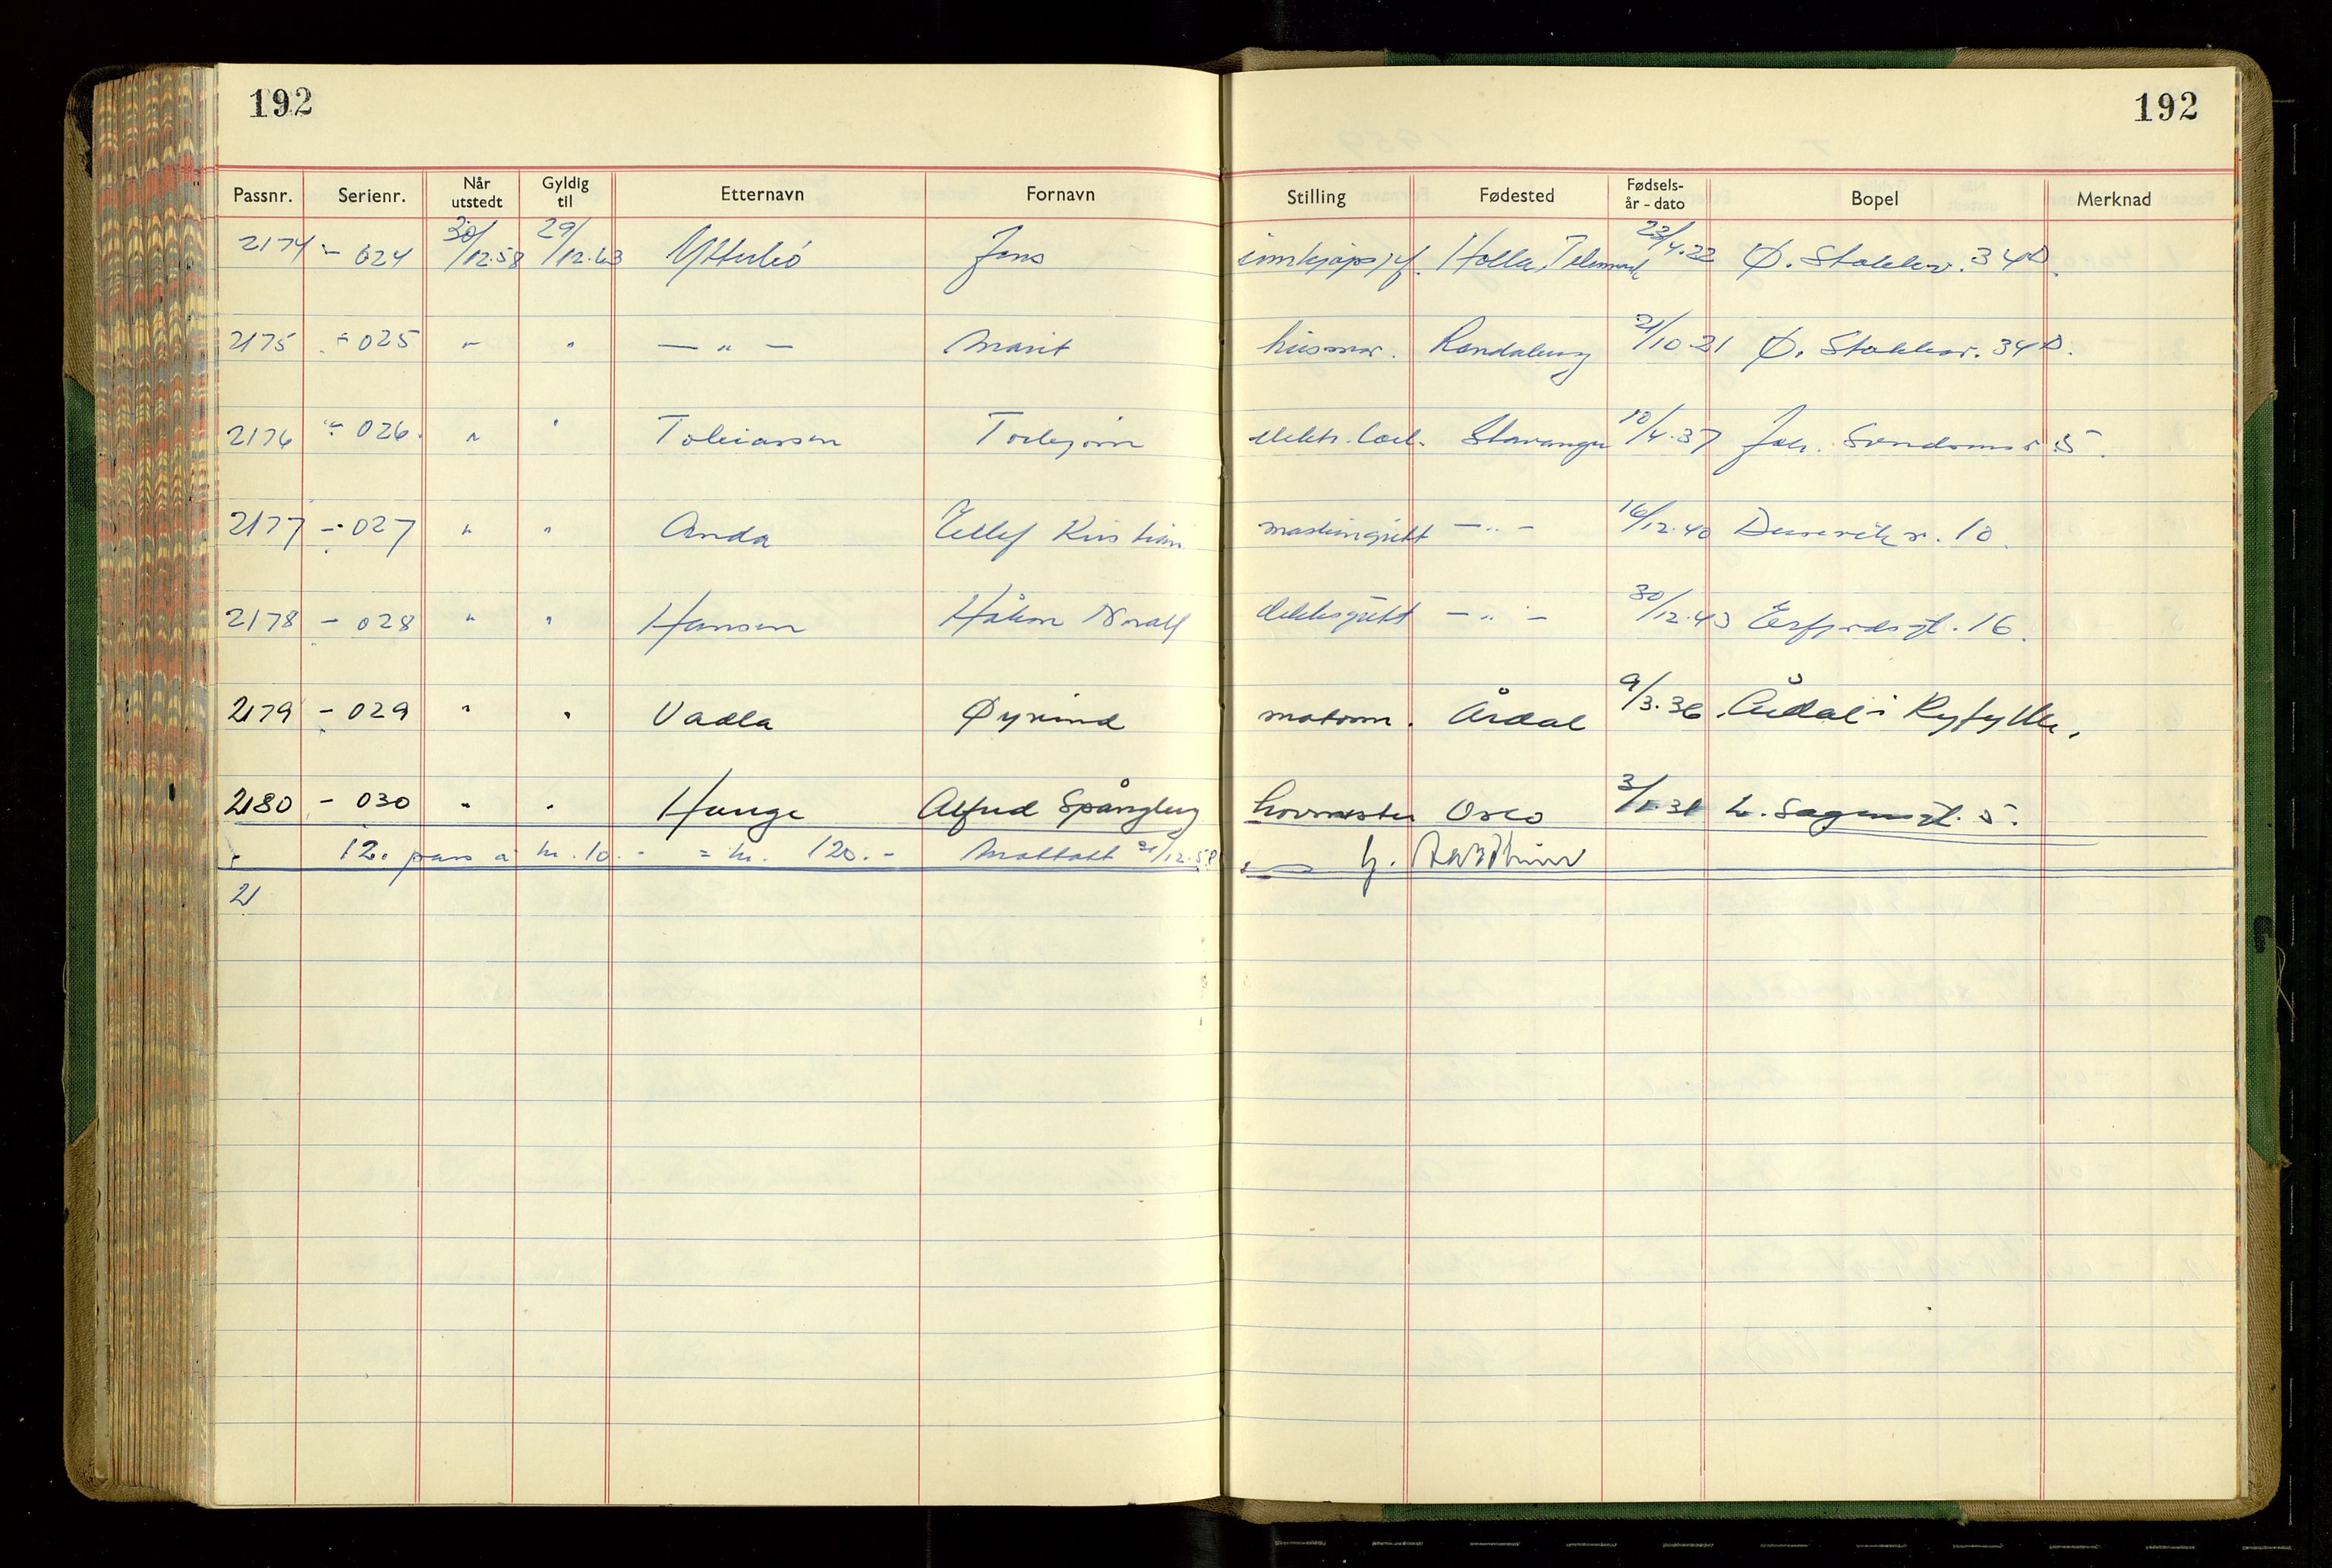 192
192
Passnr. Serienr. Når utstedt Gyldig til Etternavn Fornavn Stilling Fødested Fødsels- år - dato Bopel Merknad
2174 - 024 30/12.58 29/12.63 Ytterbö Jens innkjøpssjef. Holla, Telemark 23/4.22 Ø. Stokkav. 34D.
2175 - 025 " " — " — Marit husmor. Randaberg 21/10 21 Ø. Stokkav. 34D.
2176 - 026. " " Tobiassen Torbjørn elektr. Stavanger 10/4.37 Joh. 5.
2177 - 027 " " Anda Tellef Kristian maskingutt — " — 16/12.40 Dusavik v. 10.
2178 - 028 " " Hansen Håkon Norall dekksgutt — " — 30/12.43 Erfjordsgt. 16.
2179 - 029 " " Vadla Øyvind matros. Årdal 9/3.36 Årdal i Ryfylke.
2180 - 030 " " Hauge Alfred Spångberg hovmester Oslo L. Sagensgt. 5.
12. pass a kr. 10. - = kr. 120. - Mottatt 31/12.58
21